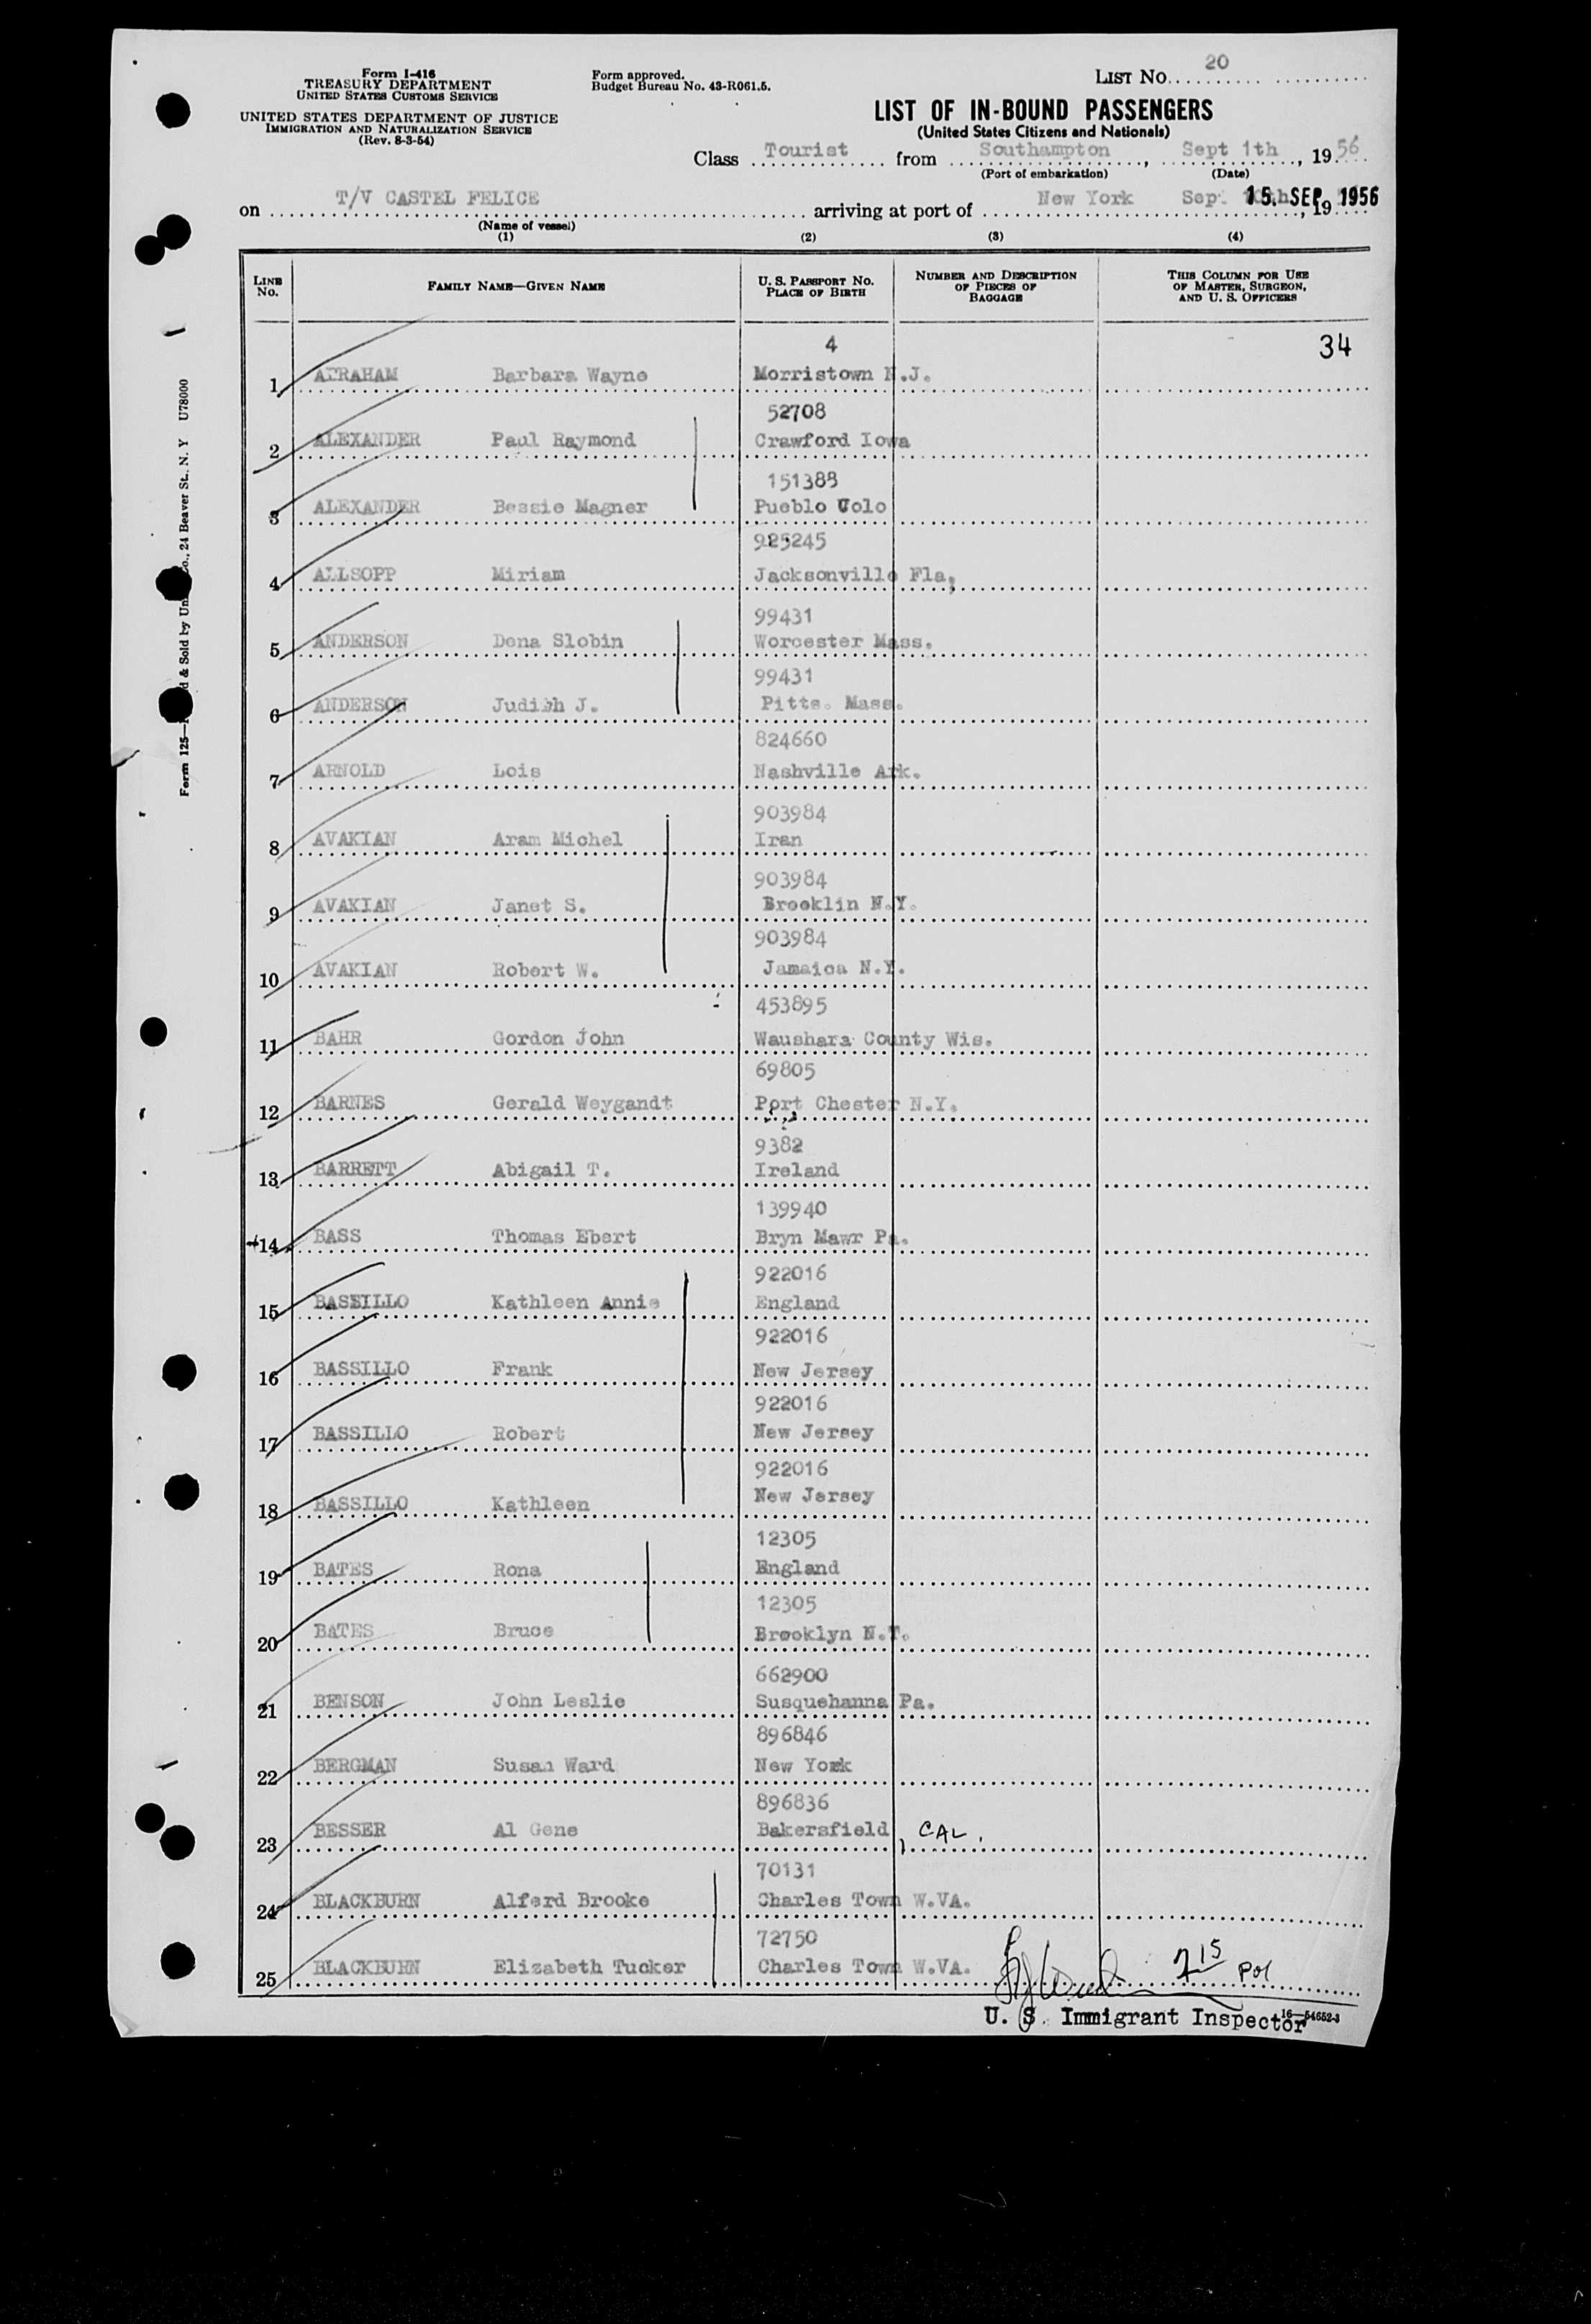 Form I-416
TREASURY DEPARTMENT
UNITED STATES CUSTOMS SERVICE
UNITED STATES DEPARTMENT OF JUSTICE
IMMIGRATION AND NATURALIZATION SERVICE
(Rev. 8-3-54)
Form approved.
Budget Bureau No. 43-R061.5.
LIST No. 20
LIST OF IN-BOUND PASSENGERS
(United States Citizens and Nationals)
Class Tourist from Southampton, Sept 1th, 19 56
(Port of embarkation) (Date)
on T/V CASTEL FELICE arriving at port of New York Sept 15. SEP. 1956, 19
(Name of vessel)
(1) (2) (3) (4)
LINE No. FAMILY NAME—GIVEN NAME U. S. PASSPORT NO. PLACE OF BIRTH NUMBER AND DESCRIPTION OF PIECES OF BAGGAGE THIS COLUMN FOR USE OF MASTER, SURGEON, AND U. S. OFFICERS
4 34
1 ABRAHAM Barbara Wayne Morristown N.J.
52708
2 ALEXANDER Paul Raymond Crawford Iowa
151388
3 ALEXANDER Bessie Magner Pueblo Colo
925245
4 ALLSOPP Miriam Jacksonville Fla,
99431
5 ANDERSON Dena Slobin Worcester Mass.
99431
6 ANDERSON Judith J. Pitts. Mass.
824660
7 ARNOLD Lois Nashville Ark.
903984
8 AVAKIAN Aram Michel Iran
903984
9 AVAKIAN Janet S. Brooklin N.Y.
903984
10 AVAKIAN Robert W. Jamaica N.Y.
453895
11 BAHR Gordon John Waushara County Wis.
69805
12 BARNES Gerald Weygandt Port Chester N.Y.
9382
13 BARRETT Abigail T. Ireland
139940
14 BASS Thomas Ebert Bryn Mawr Pa.
922016
15 BASSILLO Kathleen Annie England
922016
16 BASSILLO Frank New Jersey
922016
17 BASSILLO Robert New Jersey
922016
18 BASSILLO Kathleen New Jersey
12305
19 BATES Rona England
12305
20 BATES Bruce Brooklyn N.Y.
662900
21 BENSON John Leslie Susquehanna Pa.
896846
22 BERGMAN Susan Ward New York
896836
23 BESSER Al Gene Bakersfield, CAL.
70131
24 BLACKBURN Alferd Brooke Charles Town W.VA.
72750
25 BLACKBURN Elizabeth Tucker Charles Town W.VA.
U. S. Immigrant Inspector
16—54652-3
Form 125— d & Sold by Un Co., 24 Beaver St., N. Y U78000